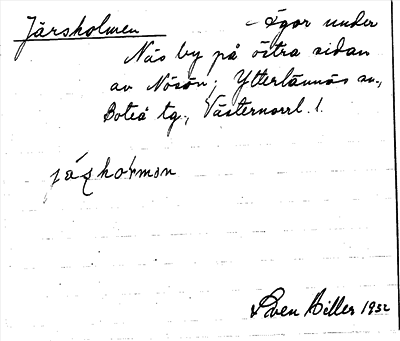 Järsholmen - Ägor under
Näs by på östra sidan
av Nösön; Ytterlännäs sn.,
Boteå tg., Västernorrl. l.
Sven Hiller 1932